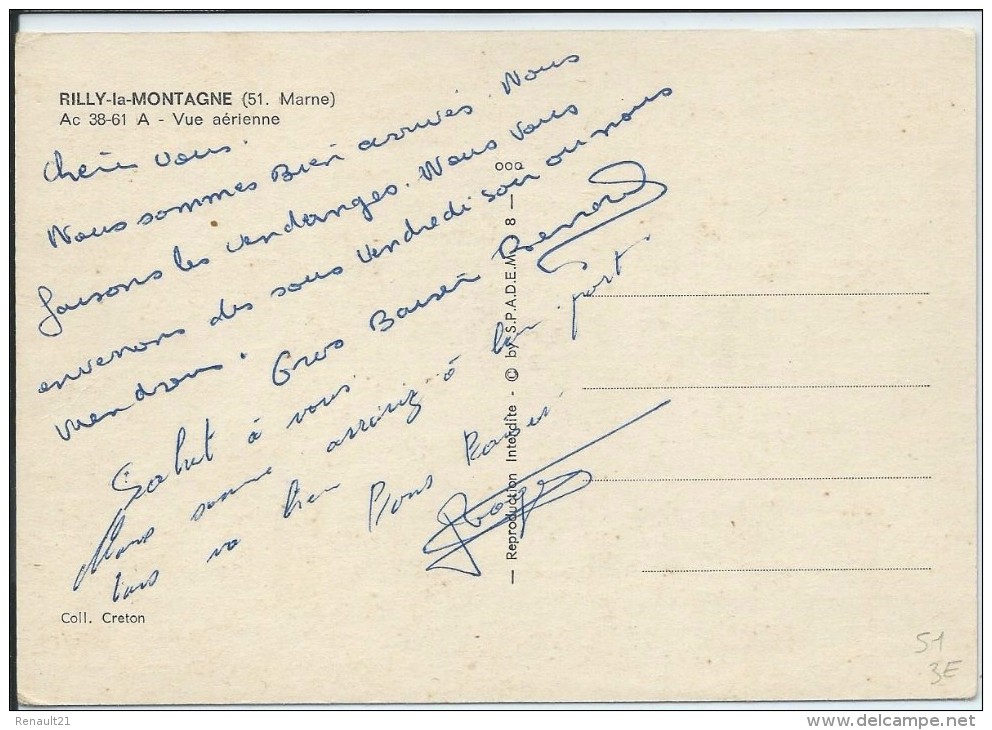 RILLY-la-MONTAGNE (51. Marne)
Ac 38-61 A - Vue aérienne
vous.
Nous sommes Bien arrivés. Nous
faisons les vendanges. Nous Vous
envenons des sous Vendredi soir ou nous
viendrons. Gros Baiser Bernard
Salut à vous.
Nous somme arrivez à bon port
tous va bien Bons Baiser
Roger
— Reproduction Interdite - © by S.P.A.D.E.M. 8 —
Coll. Creton
51
3E
Renault21
www.delcampe.net